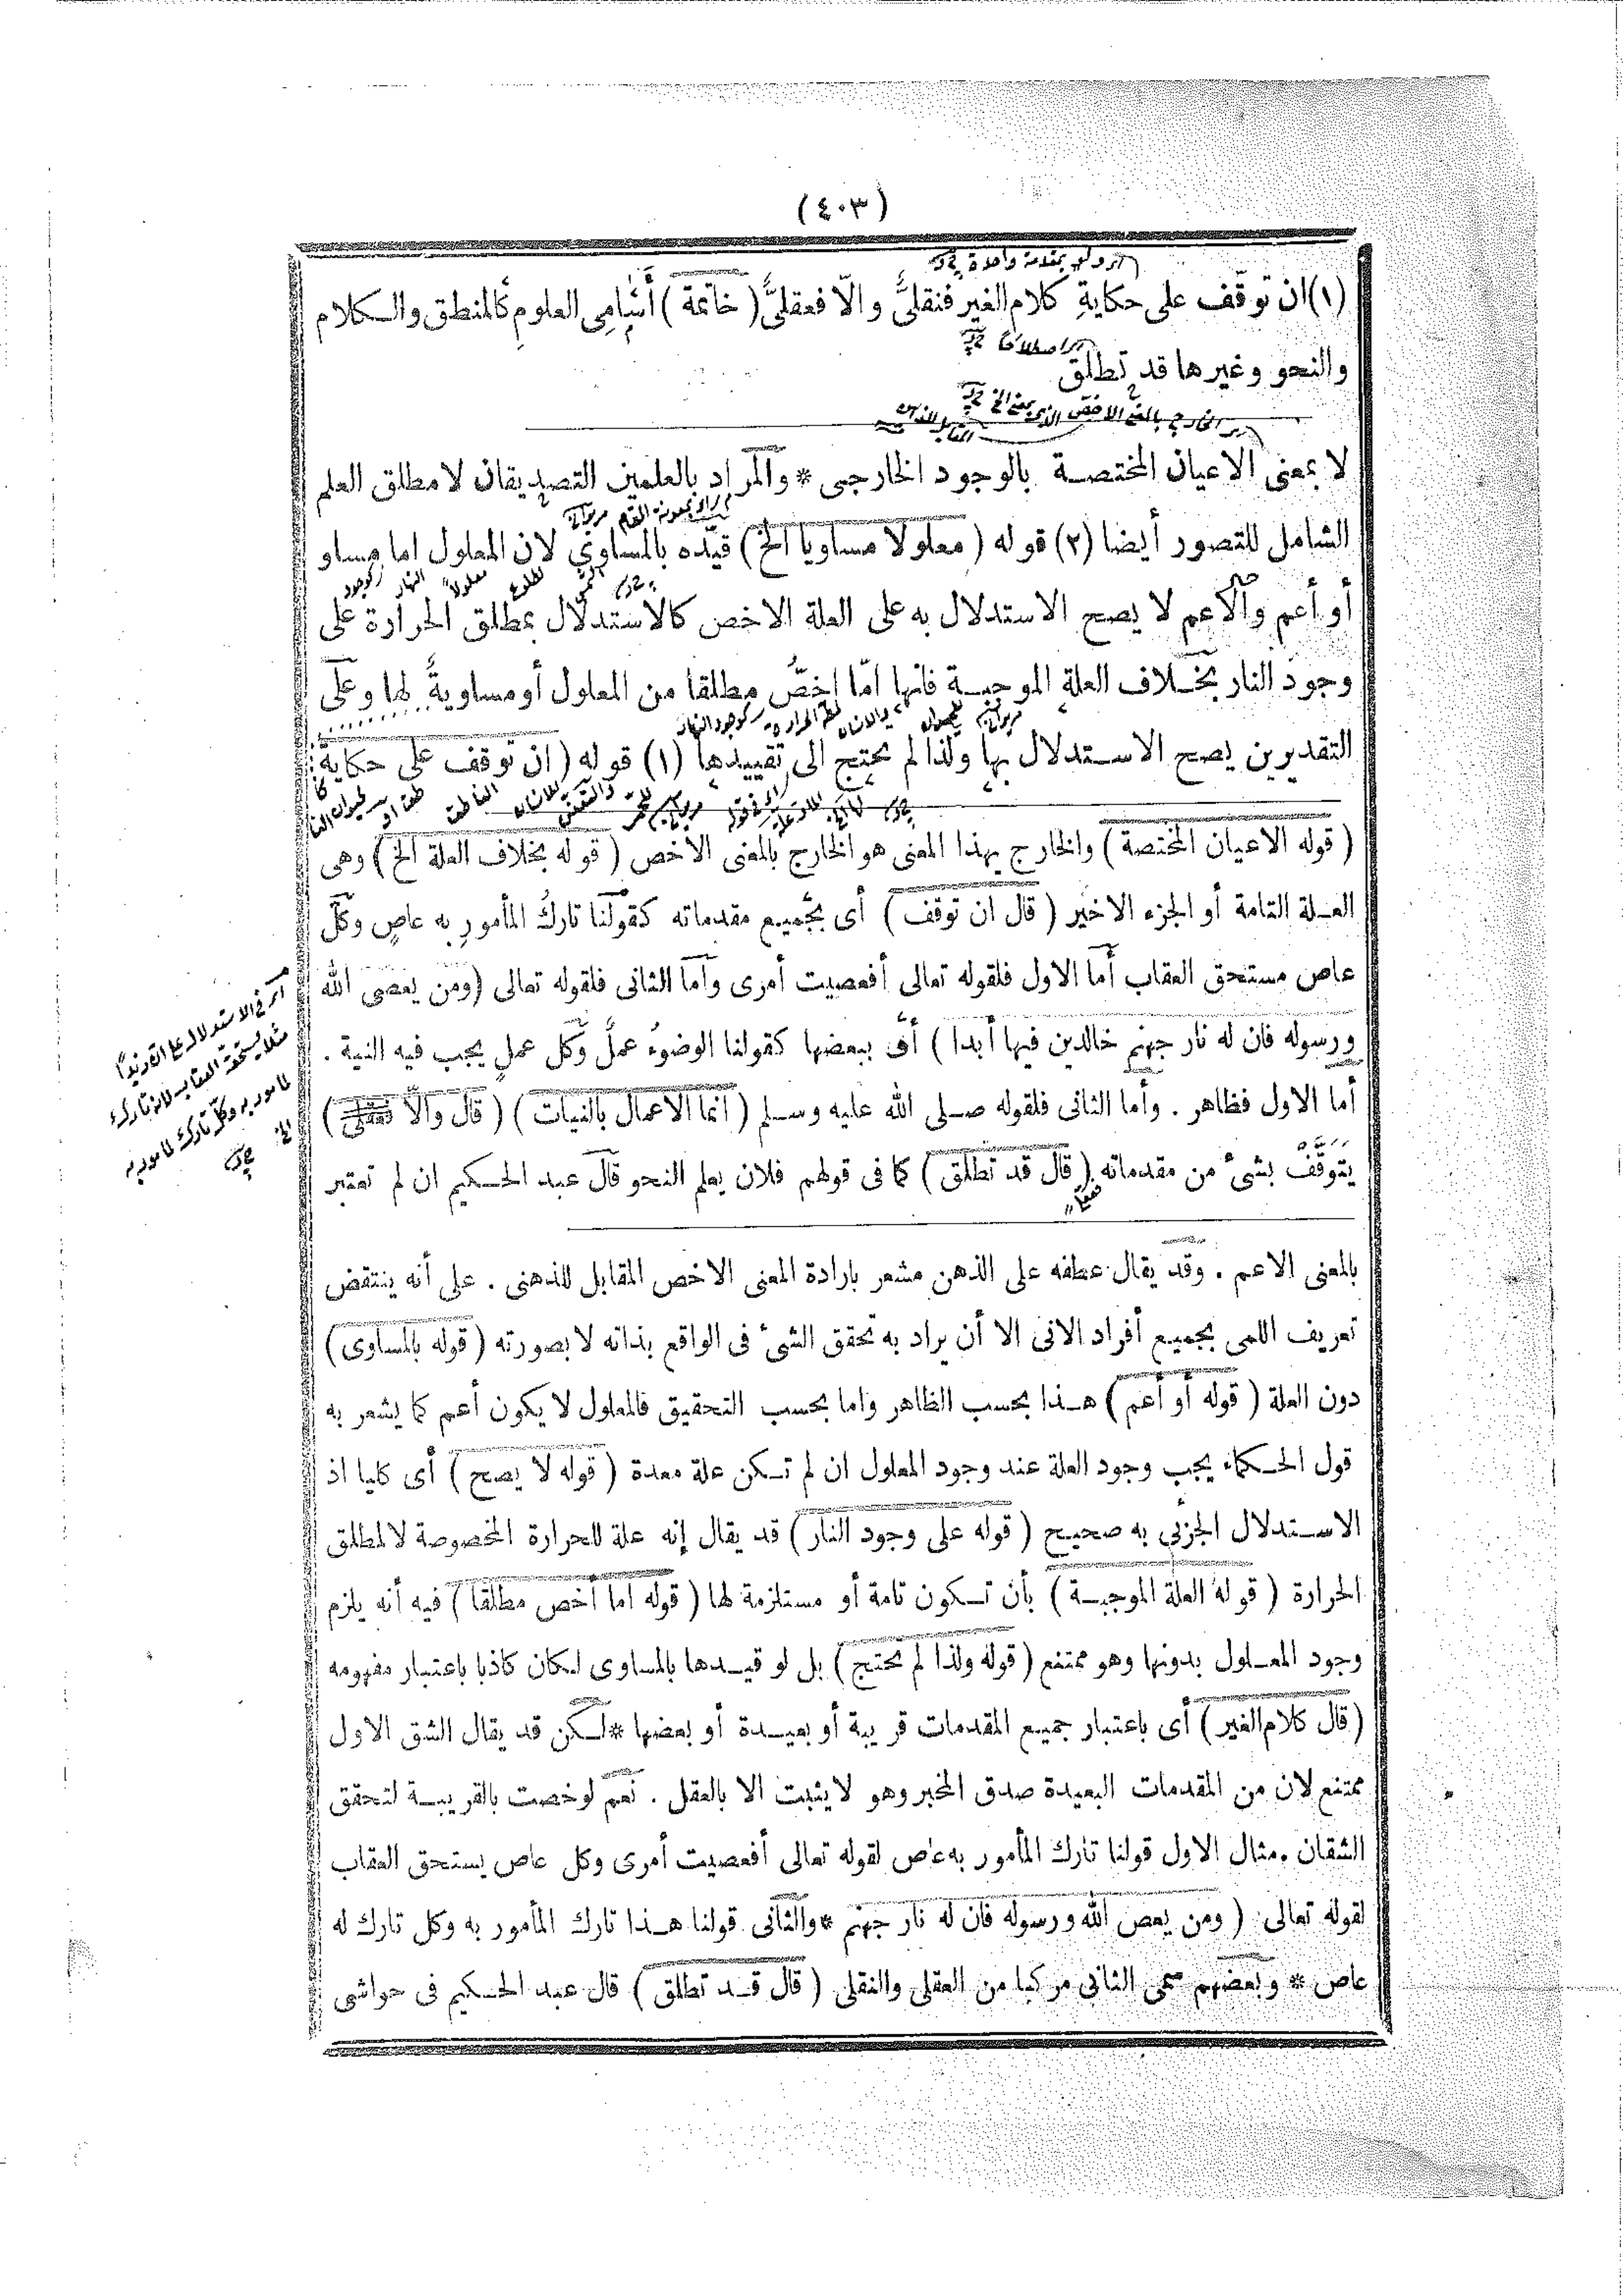 (٤٠٣)
(١) ان توقف على حكايةِ كلام الغير فنقلىٌّ والّا فعقلىٌّ (خاتمة) أسَامِى العلومِ كالمنطق والكلام
والنحو وغيرها قد تطلق
لا بمعنى الاعيان المختصة بالوجود الخارجى * والمراد بالعلمين التصديقان لا مطلق العلم
الشامل للتصور أيضا (٢) قوله (معلولا مساويا الخ) قيّده بالمساوى لان المعلول اما مساو
أو أعم والاعم لا يصح الاستدلال به على العلة الاخص كالاستدلال بمطلق الحرارة على
وجود النار بخلاف العلة الموجبة فانها امّا اخصُّ مطلقا من المعلول أو مساويةٌ لها وعلى
التقديرين يصح الاستدلال بها ولذا لم يحتج الى تقييدها (١) قوله (ان توقف على حكاية)
(قوله الاعيان المختصة) والخارج بهذا المعنى هو الخارج بالمعنى الاخص (قوله بخلاف العلة الخ) وهى
العلة التامة أو الجزء الاخير (قال ان توقف) أى بجميع مقدماته كقولنا تاركُ المأمورِ به عاصٍ وكلّ
عاص مستحق العقاب أما الاول فلقوله تعالى أفعصيت أمرى وأما الثانى فلقوله تعالى (ومن يعصى الله
ورسوله فان له نار جهنم خالدين فيها أبدا) أو ببعضها كقولنا الوضوء عملٌ وكل عمل يجب فيه النية .
أما الاول فظاهر . وأما الثانى فلقوله صلى الله عليه وسلم (انما الاعمال بالنيات) (قال والّا فعقلى)
يتوقفْ بشىء من مقدماته (قال قد تطلق) كما فى قولهم فلان يعلم النحو قال عبد الحكيم ان لم تعتبر
بالمعنى الاعم . وقد يقال عطفه على الذهن مشعر بارادة المعنى الاخص المقابل للذهنى . على أنه ينتقض
تعريف اللمى بجميع أفراد الانى الا أن يراد به تحقق الشىء فى الواقع بذاته لا بصورته (قوله بالمساوى)
دون العلة (قوله أو أعم) هذا بحسب الظاهر واما بحسب التحقيق فالمعلول لا يكون أعم كما يشعر به
قول الحكماء يجب وجود العلة عند وجود المعلول ان لم تكن علة معدة (قوله لا يصح) أى كليا اذ
الاستدلال الجزئى به صحيح (قوله على وجود النار) قد يقال إنه علة للحرارة المخصوصة لا لمطلق
الحرارة (قوله العلة الموجبة) بأن تكون تامة أو مستلزمة لها (قوله اما أخص مطلقا) فيه أنه يلزم
وجود المعلول بدونها وهو ممتنع (قوله ولذا لم يحتج) بل لو قيدها بالمساوى لكان كاذبا باعتبار مفهومه
(قال كلام الغير) أى باعتبار جميع المقدمات قريبة أو بعيدة أو بعضها * لكن قد يقال الشق الاول
ممتنع لان من المقدمات البعيدة صدق المخبر وهو لا يثبت الا بالعقل . نعم لو خصت بالقريبة لتحقق
الشقان . مثال الاول قولنا تارك المأمور به عاص لقوله تعالى أفعصيت أمرى وكل عاص يستحق العقاب
لقوله تعالى (ومن يعص الله ورسوله فان له نار جهنم * والثانى قولنا هذا تارك المأمور به وكل تارك له
عاص * وبعضهم سمى الثانى مركبا من العقلى والنقلى (قال قد تطلق) قال عبد الحكيم فى حواشى